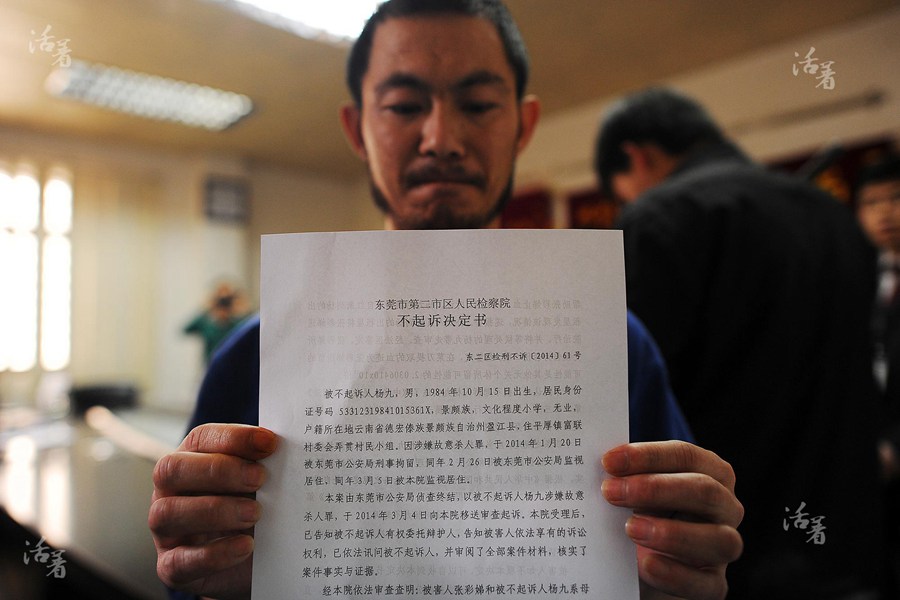 活着
活着
东莞市第二市区人民检察院
不起诉决定书
东二区检刑不诉〔2014〕61号
被不起诉人杨九，男，1984年10月15日出生，居民身份
证号码 53312319841015361X，景颇族，文化程度小学，无业，
户籍所在地云南省德宏傣族景颇族自治州盈江县，住平原镇富联
村委会弄贯村民小组。因涉嫌故意杀人罪，于2014年1月20日
被东莞市公安局刑事拘留，同年2月26日被东莞市公安局监视
居住，同年3月5日被本院监视居住。
本案由东莞市公安局侦查终结，以被不起诉人杨九涉嫌故意
杀人罪，于2014年3月4日向本院移送审查起诉。本院受理后，
已告知被不起诉人有权委托辩护人，告知被害人依法享有的诉讼
权利，已依法讯问被不起诉人，并审阅了全部案件材料，核实了
案件事实与证据。
经本院依法审查查明：被害人张彩娣和被不起诉人杨九系母
活着
活着